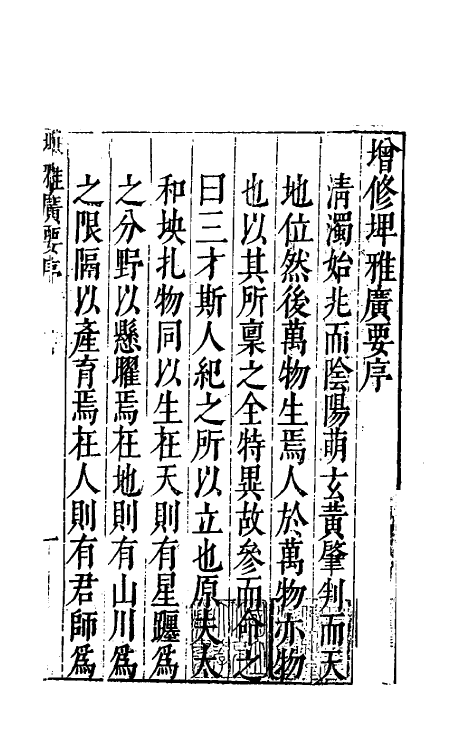 增修埤雅廣要序
清濁始兆而陰陽萌玄黃肇判而天
地位然後萬物生焉人於萬物亦物
也以其所稟之全特異故參而命之
曰三才斯人紀之所以立也原夫太
和坱扎物同以生在天則有星躔爲
之分野以懸曜焉在地則有山川爲
之限隔以產育焉在人則有君師爲
埤雅廣要序
一